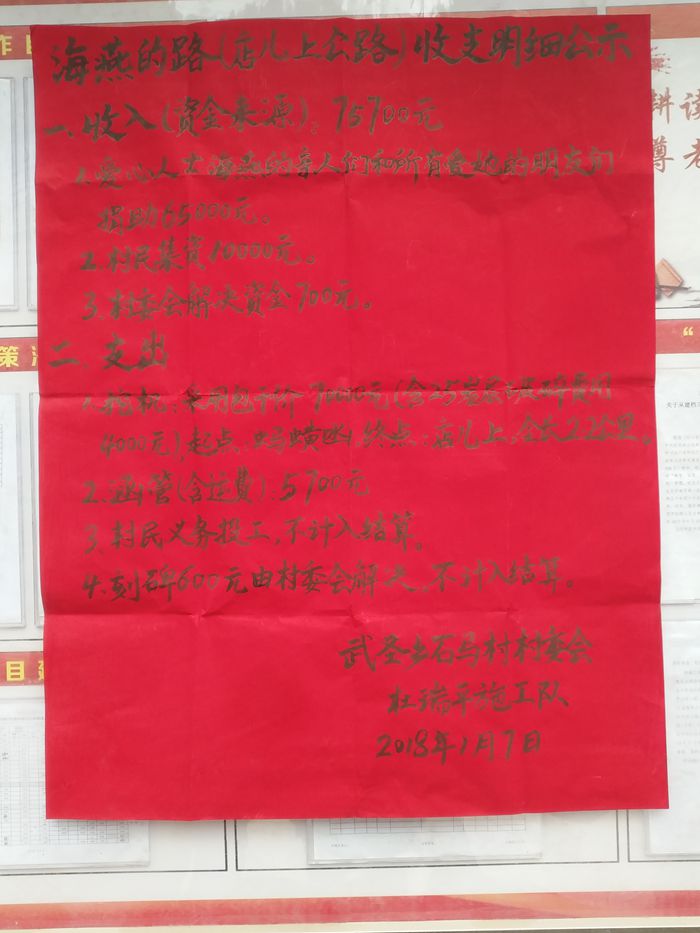 海燕的路(店儿上公路)收支明细公示
一、收入(资金来源):75700元
1.爱心人士海燕的亲人们和所有爱她的朋友们
捐助65000元。
2.村民集资10000元。
3.村委会解决资金700元。
二、支出
1.挖机:采用包干价70000元(含
4000元),起点:蚂蟥
终点:店儿上,全长2.2公里。
2.涵管(含运费):5700元
3.村民义务投工,不计入结算。
4.刻碑600元由村委会解决,不计入结算。
武圣乡石马村村委会
杜瑞平施工队
2018年1月7日
耕读
尊老
作
策
目